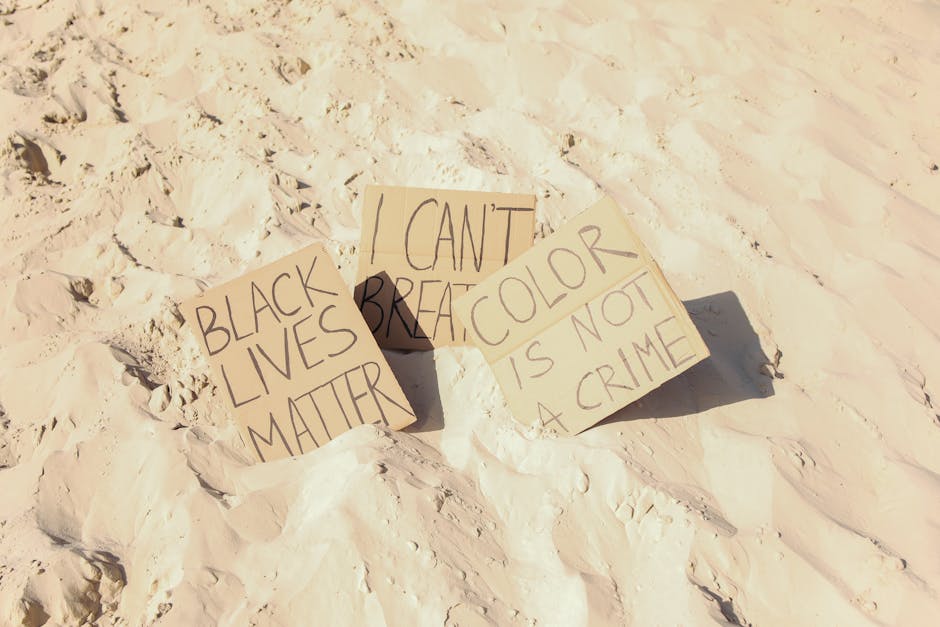 BLACK
LIVES
MATTER
I CAN'T
BREAT
COLOR
IS NOT
A CRIME